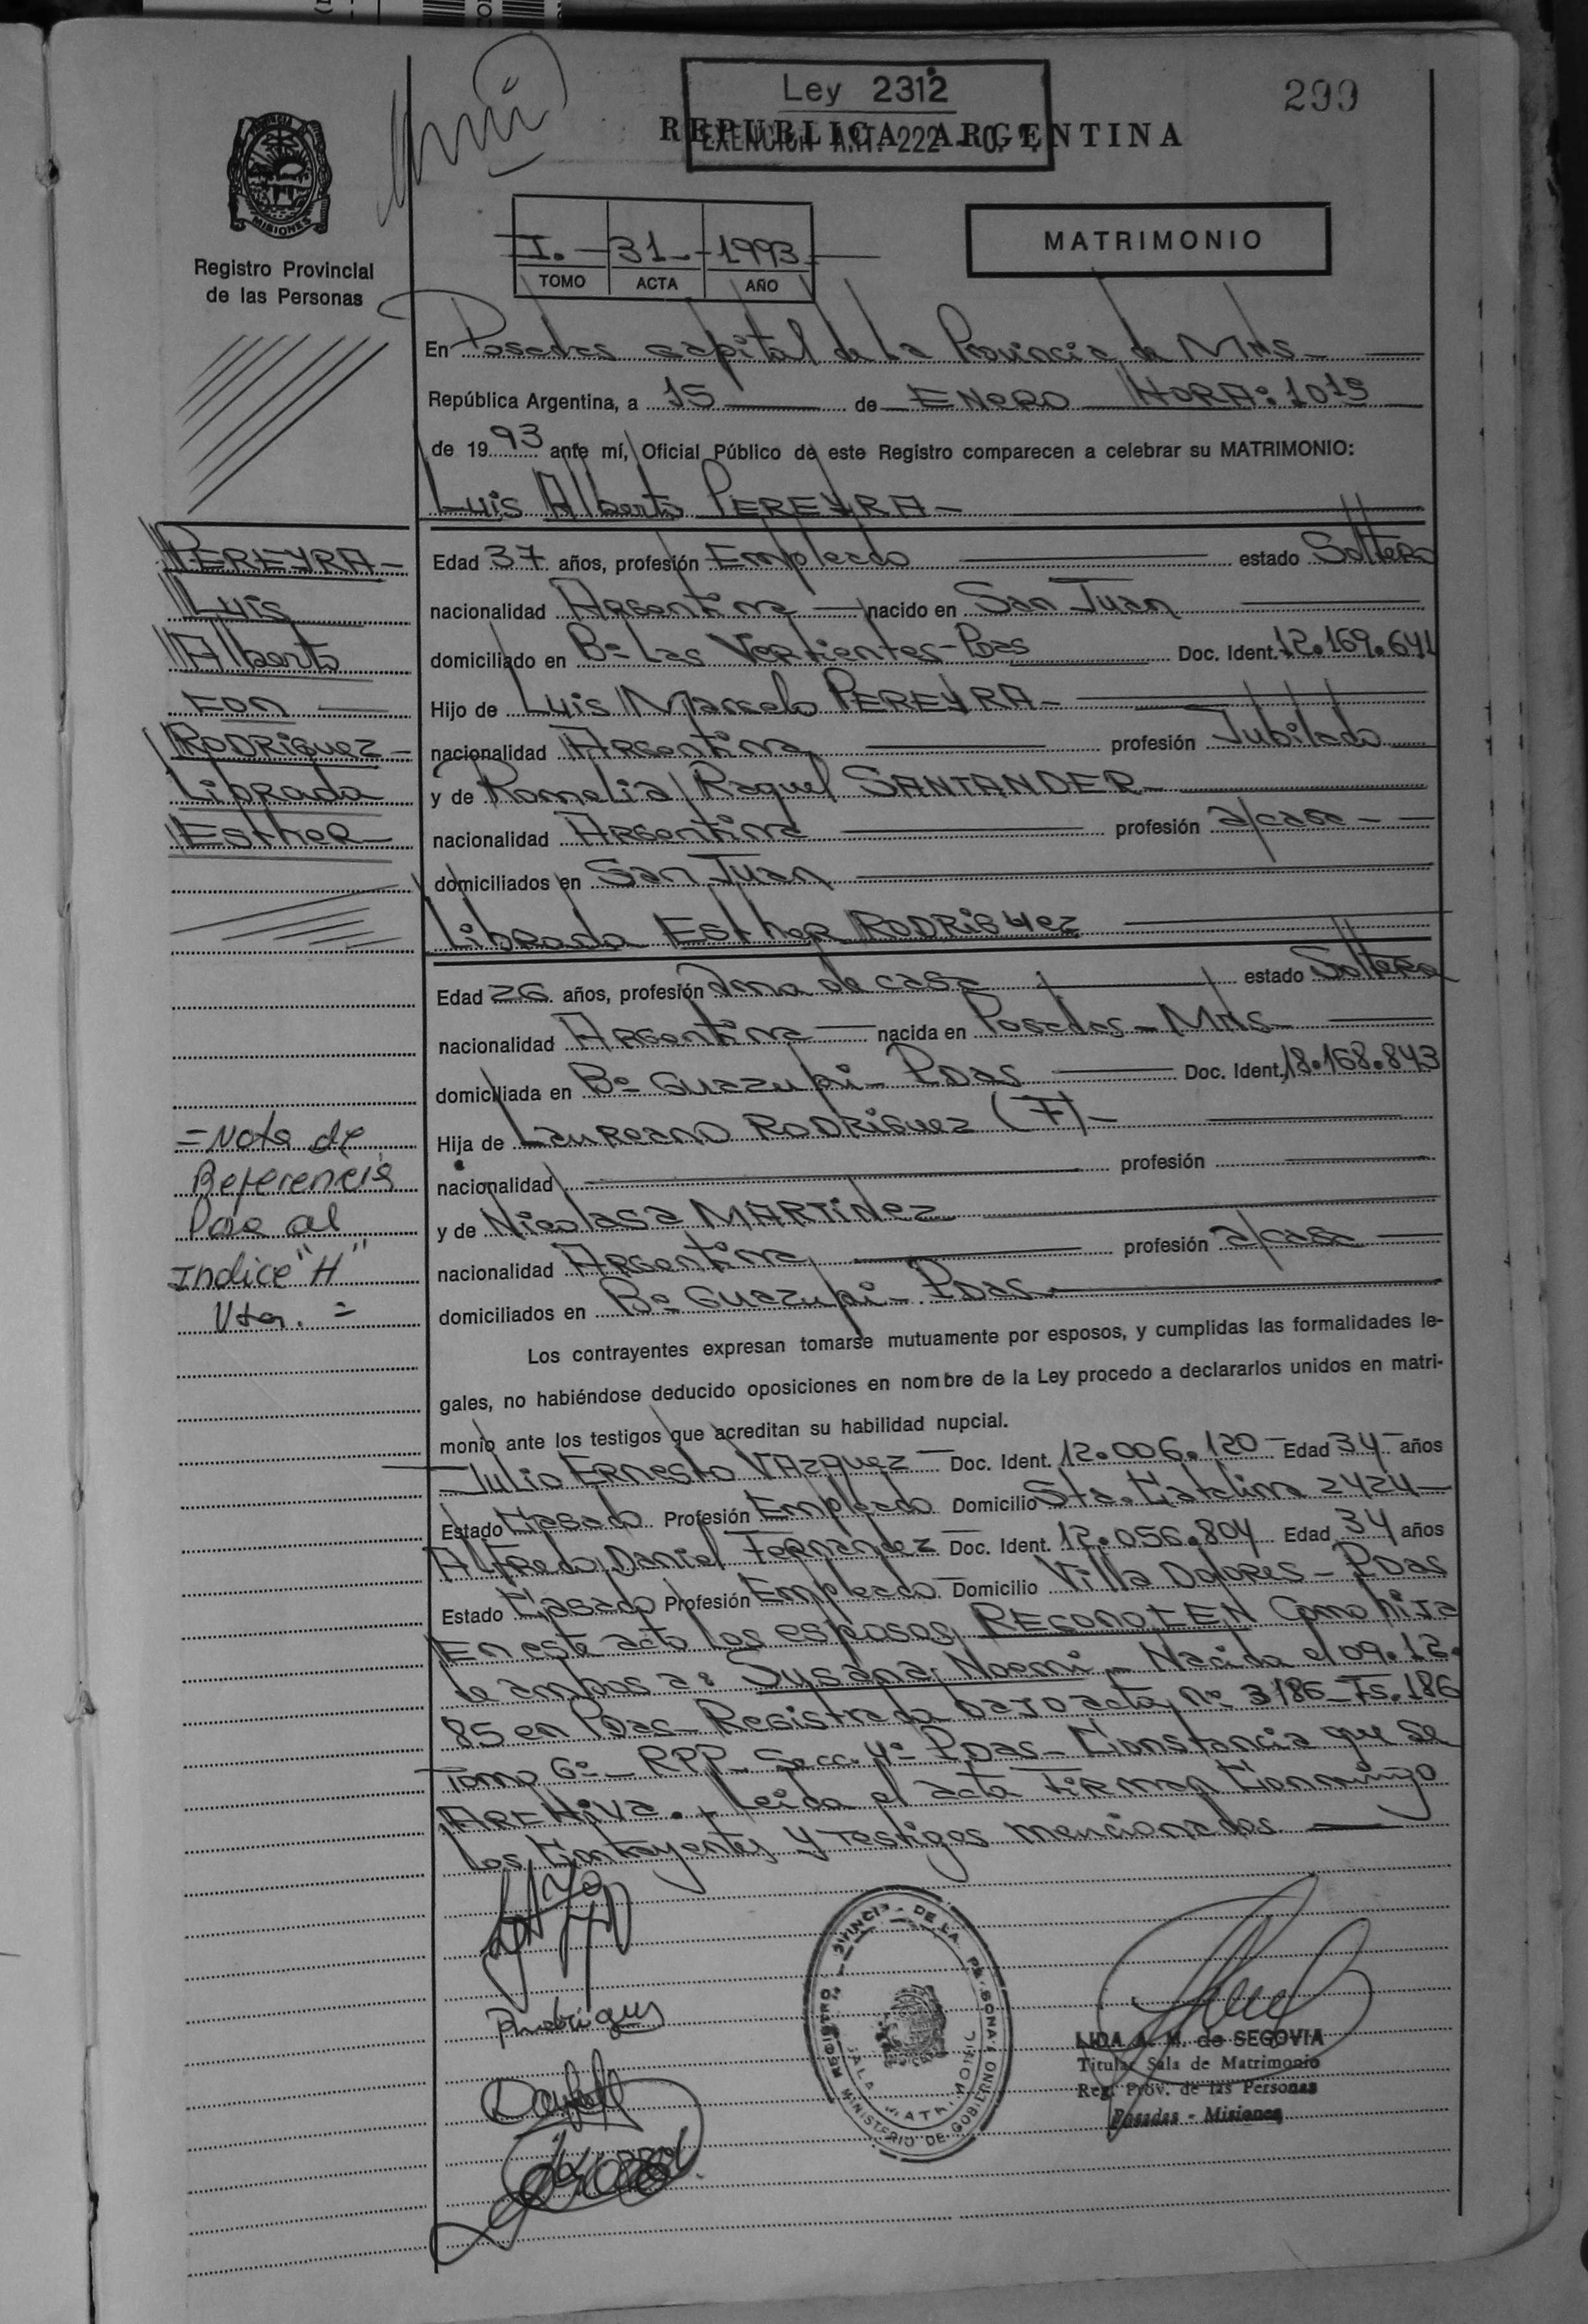 Ley 2312
EXENCION ART. 222
299
REPUBLICA ARGENTINA
PROVINCIA DE
MISIONES
Registro Provincial
de las Personas
I.- 31.- 1993
TOMO ACTA AÑO
MATRIMONIO
En Posadas capital de la Provincia de Mnes-
República Argentina, a 15 de ENERO HORA: 1015
de 1993 ante mí, Oficial Público de este Registro comparecen a celebrar su MATRIMONIO:
Luis Alberto PEREYRA-
PEREYRA-
Luis
Alberto
Con
RODRIGUEZ-
Librada
Esther-
Edad 37 años, profesión Empleado estado Soltero
nacionalidad Argentina nacido en San Juan
domiciliado en Bº Las Vertientes-Pdas Doc. Ident. 12.169.641
Hijo de Luis Marcelo PEREYRA-
nacionalidad Argentina profesión Jubilado
y de Romelia Raquel SANTANDER-
nacionalidad Argentina profesión a/casa-
domiciliados en San Juan
Librada Esther RODRIGUEZ
Edad 26 años, profesión Ama de casa estado Soltera
nacionalidad Argentina nacida en Posadas-Mnes-
domiciliada en Bº Guazupi-Pdas Doc. Ident. 18.168.843
Hija de Laureano RODRIGUEZ (F)-
nacionalidad profesión
y de Nicolasa MARTINEZ
nacionalidad Argentina profesión a/casa
domiciliados en Bº Guazupi-Pdas
=Nota de
Referencia
Pase al
Indice "H"
Vta. =
Los contrayentes expresan tomarse mutuamente por esposos, y cumplidas las formalidades le-
gales, no habiéndose deducido oposiciones en nombre de la Ley procedo a declararlos unidos en matri-
monio ante los testigos que acreditan su habilidad nupcial.
Julio Ernesto VAZQUEZ- Doc. Ident. 12.006.120- Edad 34- años
Estado Casado Profesión Empleado Domicilio Sta. Catalina 2424-
Alfredo Daniel Fernandez Doc. Ident. 12.056.804 Edad 34 años
Estado Casado Profesión Empleado- Domicilio Villa Dolores-Pdas
En este acto los esposos RECONOCEN Como hija
de ambos a: Susana Noemi- Nacida el 09.12.
85 en Pdas- Registrada bajo acta nº 3186-Fs.186
Tomo 6º- RPP- Secc. 4º Pdas- Constancia que se
ARCHIVA.- Leida el acta Firman Conmigo
los Contrayentes y Testigos mencionados
Rodrigues
REGISTRO PROVINCIAL DE LAS PERSONAS
SALA MATRIMONIO
MINISTERIO DE GOBIERNO
LIDA A. M. de SEGOVIA
Titular Sala de Matrimonio
Reg. Prov. de las Personas
Posadas - Misiones